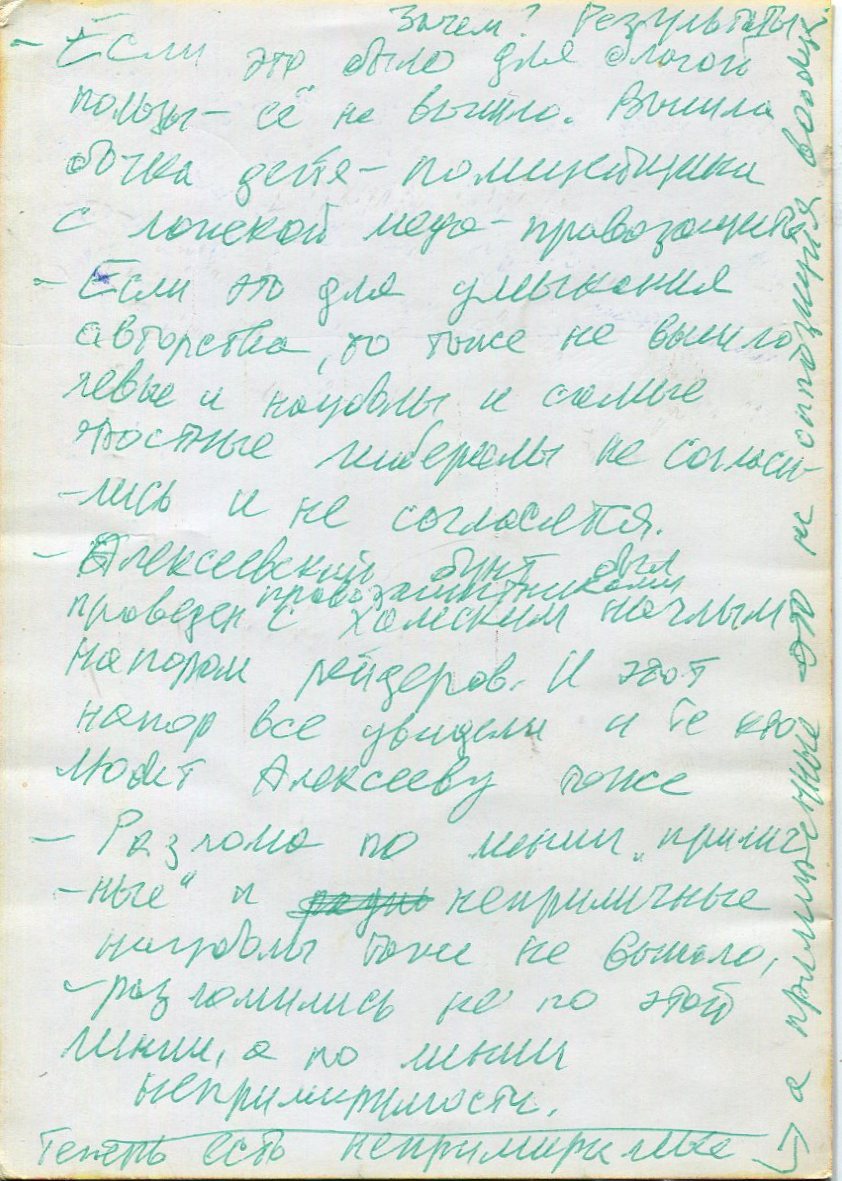 Зачем? Результаты.
- Если это было для благой
пользы - её не вышло. Вышла
бочка дегтя -
с ложкой меда - правозащиты
- Если это для умыкания
авторства, то тоже не вышло
левые и нацболы и самые
злостные либералы не согласи-
-лись и не согласятся.
- Алексеевский бунт был
правозащитниками
проведен с хамским наглым
напором рейдеров. И этот
напор все увидели и те кто
любит Алексееву тоже
- Разлома по линии "прилич
-ные" и неприличные
нацболы тоже не вышло,
- разломились не по этой
линии, а по линии
непримиримости.
Теперь есть
→ а примиренные это не оппозиция вообще.